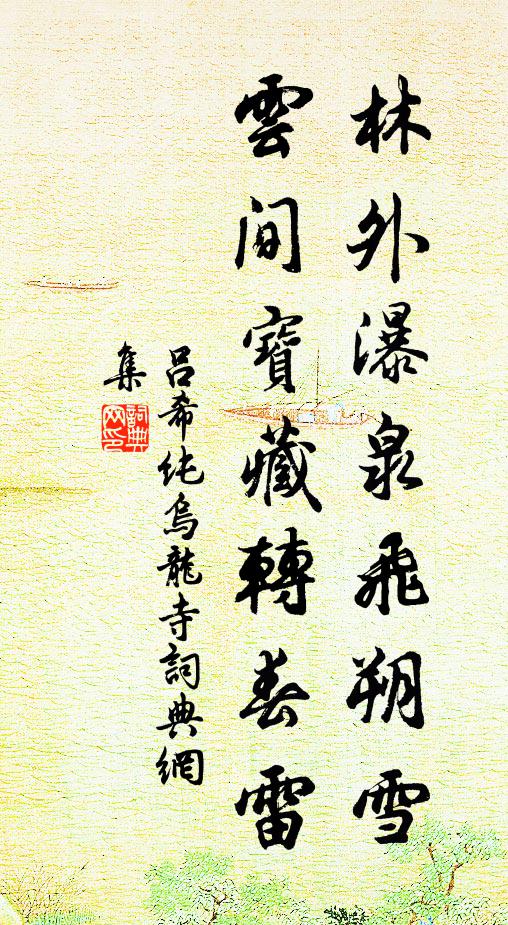 林外瀑泉飛朔雪
雲間寶藏轉春雷
呂希純烏龍寺詞典網
集
詞典
网印